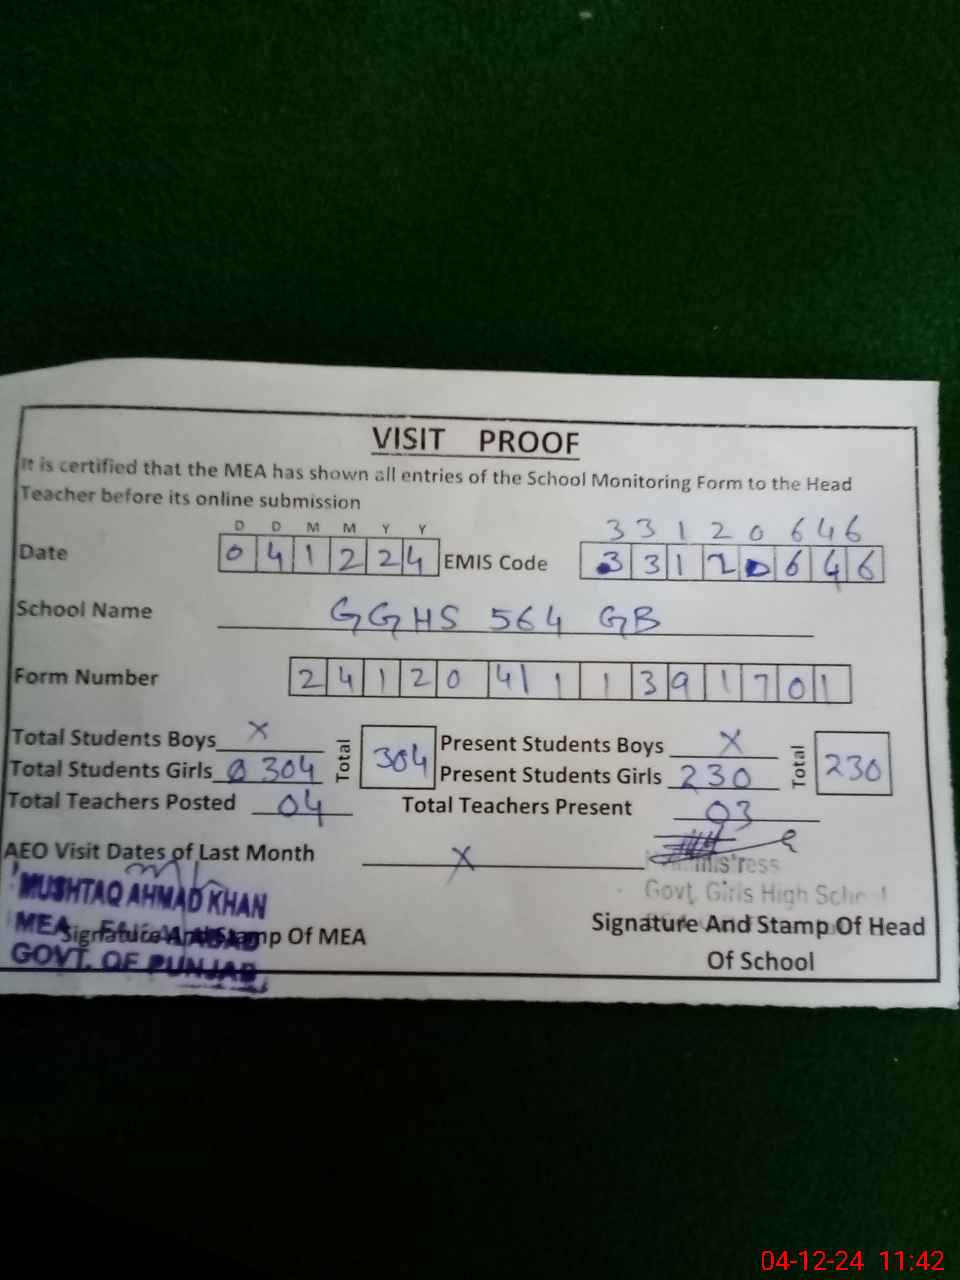 VISIT PROOF
It is certified that the MEA has shown all entries of the School Monitoring Form to the Head
Teacher before its online submission
D D M M Y Y
33120646
Date 041224 EMIS Code 33120646
School Name GGHS 564 GB
Form Number 241204111391701
Total Students Boys X Total 304 Present Students Boys X Total 230
Total Students Girls 304 Present Students Girls 230
Total Teachers Posted 04 Total Teachers Present 03
AEO Visit Dates of Last Month X
MUSHTAQ AHMAD KHAN
MEA FAISALABAD
GOVT. OF PUNJAB
Signature And Stamp Of MEA
Govt. Girls High School
Signature And Stamp Of Head
Of School
04-12-24 11:42